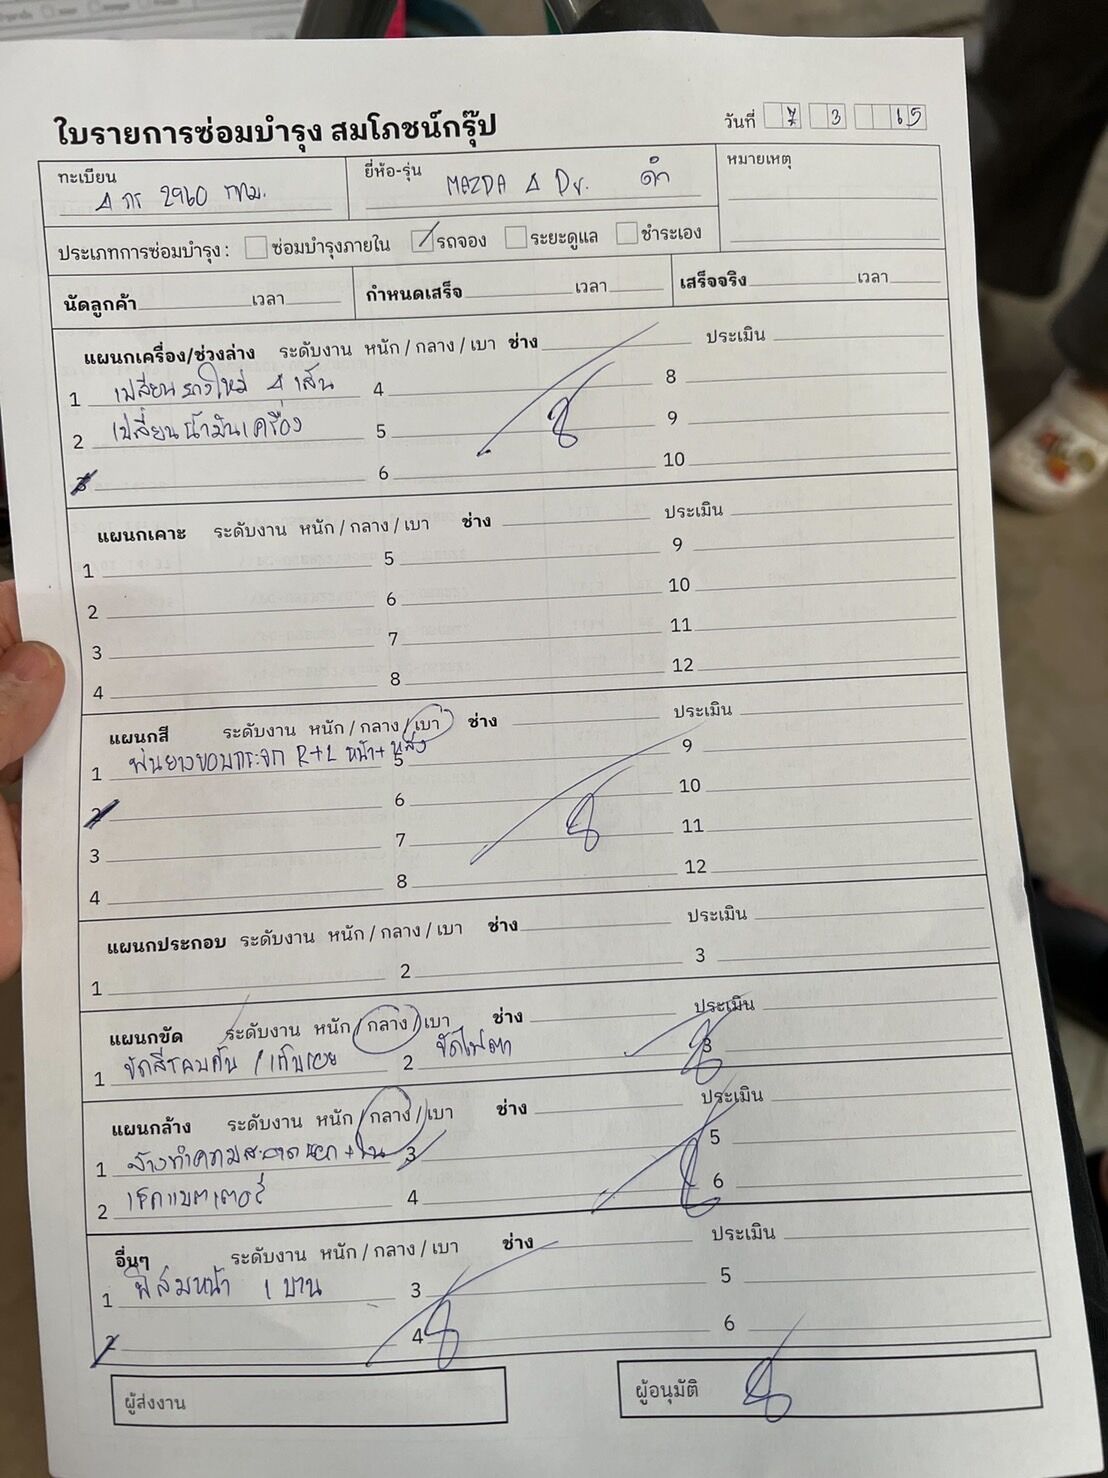 ใบรายการซ่อมบำรุง สมโภชน์กรุ๊ป
วันที่ 7 3 65
ทะเบียน 4 กร 2960 กทม.
ยี่ห้อ-รุ่น MAZDA 4 Dr. ดำ
หมายเหตุ
ประเภทการซ่อมบำรุง : ซ่อมบำรุงภายใน รถจอง ระยะดูแล ชำระเอง
นัดลูกค้า เวลา กำหนดเสร็จ เวลา เสร็จจริง เวลา
แผนกเครื่อง/ช่วงล่าง ระดับงาน หนัก / กลาง / เบา ช่าง ประเมิน
1 เปลี่ยนยางใหม่ 4 เส้น 4 8
2 เปลี่ยนน้ำมันเครื่อง 5 9
3 6 10
แผนกเคาะ ระดับงาน หนัก / กลาง / เบา ช่าง ประเมิน
1 5 9
2 6 10
3 7 11
4 8 12
แผนกสี ระดับงาน หนัก / กลาง / เบา ช่าง ประเมิน
1 พ่นยางขอบกระจก R+L หน้า+หลัง 5 9
2 6 10
3 7 11
4 8 12
แผนกประกอบ ระดับงาน หนัก / กลาง / เบา ช่าง ประเมิน
1 2 3
แผนกขัด ระดับงาน หนัก / กลาง / เบา ช่าง ประเมิน
1 ขัดสีรอบคัน / เก็บรอย 2 ขัดไฟตา 3
แผนกล้าง ระดับงาน หนัก / กลาง / เบา ช่าง ประเมิน
1 ล้างทำความสะอาดนอก+ใน 3 5
2 เช็คแบตเตอรี่ 4 6
อื่นๆ ระดับงาน หนัก / กลาง / เบา ช่าง ประเมิน
1 ฟิล์มหน้า 1 บาน 3 5
2 4 6
ผู้ส่งงาน
ผู้อนุมัติ